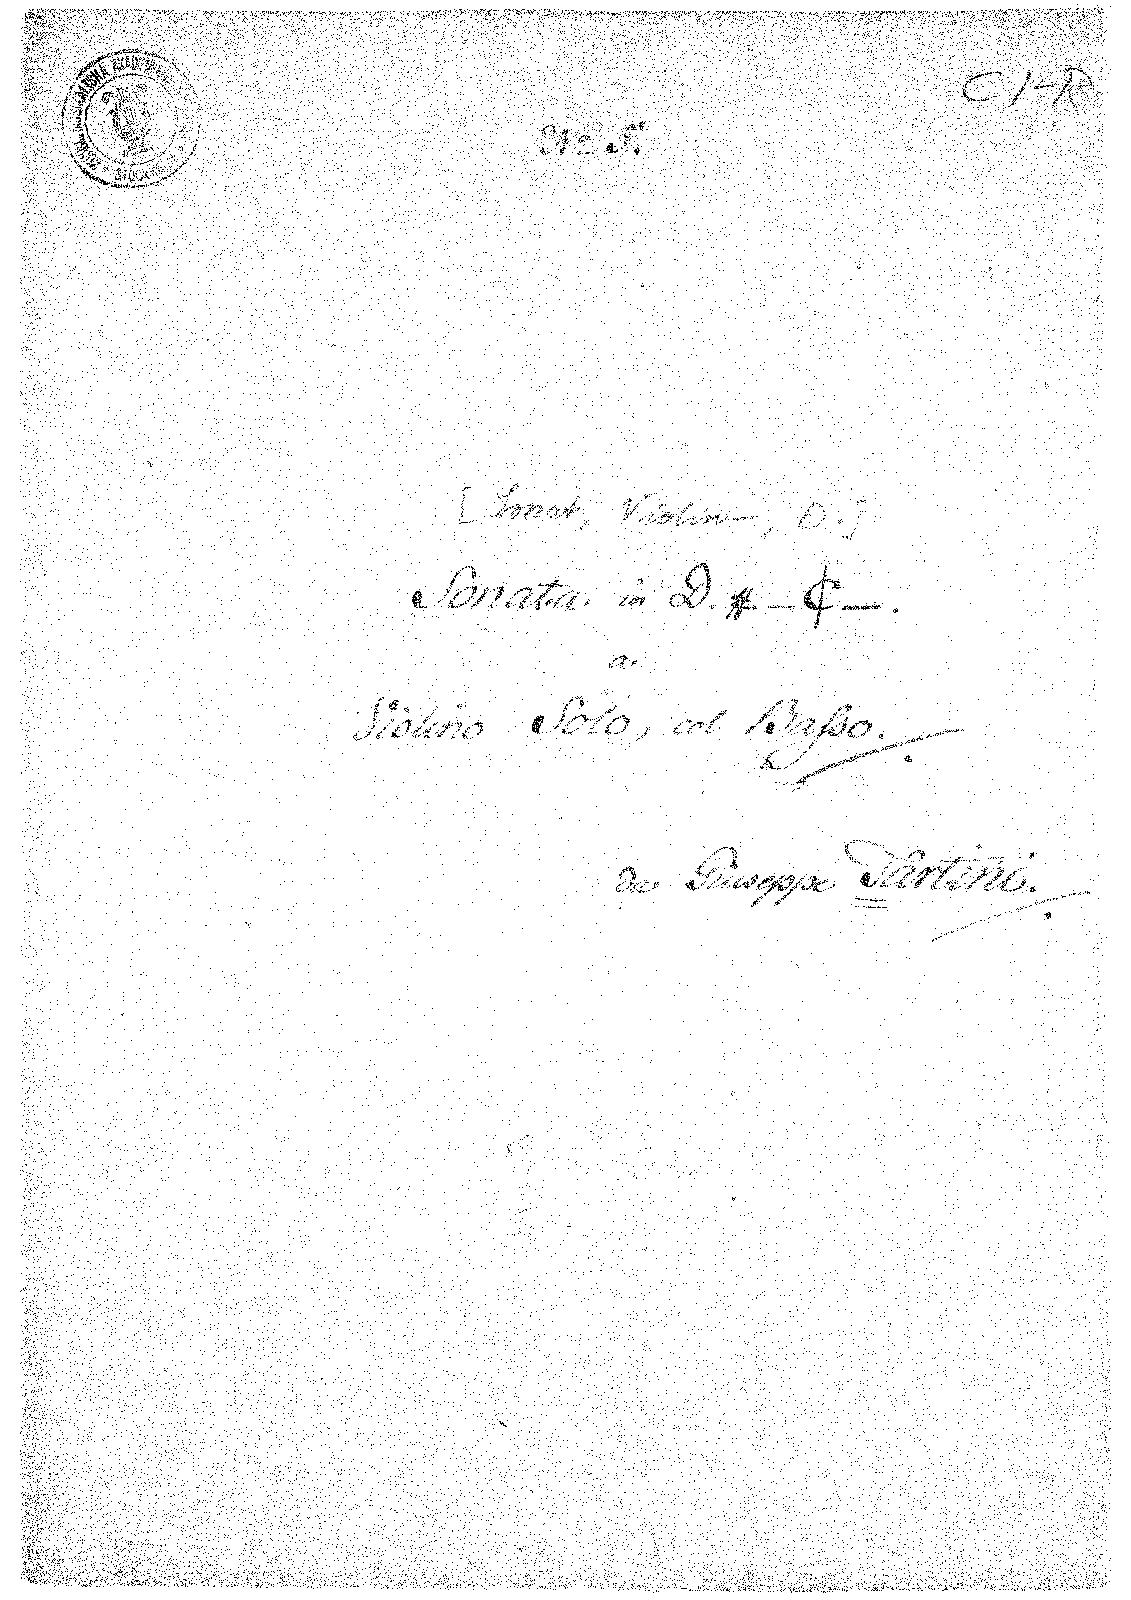 C1-R
No 5.
[Sonat, Violin—, D.]
Sonata. in D.# — C —.
a.
Violino Solo, col Basso.
Da Giuseppe Tartini.